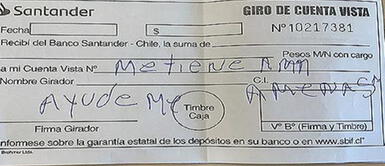 Santander GIRO DE CUENTA VISTA
Fecha $ Nº 10217381
Recibí del Banco Santander - Chile, la suma de
Pesos M/N con cargo
a mi Cuenta Vista Nº Me tiene AMM
Nombre Girador C.I. AMENAS
AYUDEME
Timbre
Caja
Firma Girador Vº Bº (Firma y Timbre)
nfórmese sobre la garantía estatal de los depósitos en su banco o en www.sbif.cl